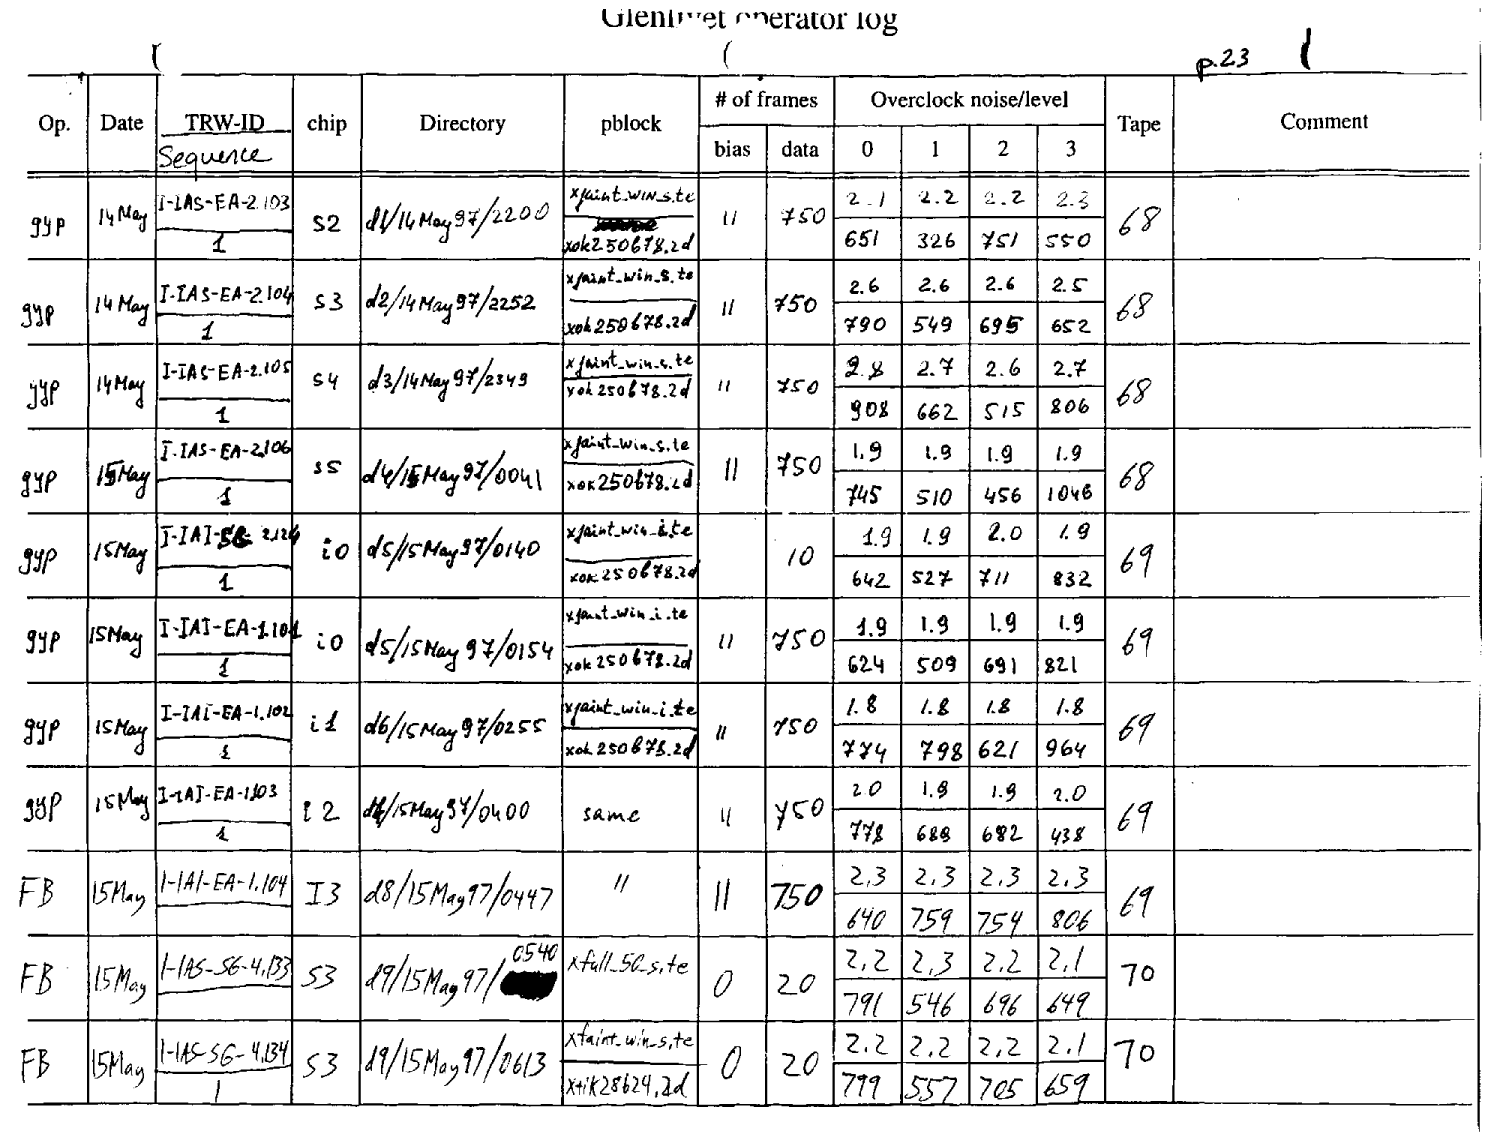 Glenlivet operator log
p.23
Op. Date TRW-ID Sequence chip Directory pblock # of frames bias data Overclock noise/level 0 1 2 3 Tape Comment
gyp 14 May I-IAS-EA-2.103 S2 d1/14May97/2200 xfaint_win_s.te 11 750 2.1 2.2 2.2 2.3 68
1 xok250678.2d 651 326 751 550
gyp 14 May I-IAS-EA-2.104 S3 d2/14May97/2252 xfaint_win_s.te 11 750 2.6 2.6 2.6 2.5 68
1 xok250678.2d 790 549 695 652
gyp 14 May I-IAS-EA-2.105 S4 d3/14May97/2349 xfaint_win_s.te 11 750 2.8 2.7 2.6 2.7 68
1 xok250678.2d 908 662 515 806
gyp 15May I-IAS-EA-2.106 S5 d4/15May97/0041 xfaint_win_s.te 11 750 1.9 1.9 1.9 1.9 68
1 xok250678.2d 745 510 456 1046
gyp 15May i0 d5/15May97/0140 xfaint_win_i.te 10 1.9 1.9 2.0 1.9 69
1 xok250678.2d 642 527 711 832
gyp 15May I-IAI-EA-1.101 i0 d5/15May97/0154 xfaint_win_i.te 11 750 1.9 1.9 1.9 1.9 69
1 xok250678.2d 624 509 691 821
gyp 15May I-IAI-EA-1.102 i1 d6/15May97/0255 xfaint_win_i.te 11 750 1.8 1.8 1.8 1.8 69
1 xok250678.2d 774 798 621 964
gyp 15May I-IAI-EA-1.103 i2 15May97/0400 same 11 750 2.0 1.9 1.9 2.0 69
1 778 688 682 438
FB 15May I-IAI-EA-1.104 I3 d8/15May97/0447 " 11 750 2.3 2.3 2.3 2.3 69
640 759 754 806
FB 15May I-IAS-SG-4.133 S3 d9/15May97/0540 xfull_50_s.te 0 20 2.2 2.3 2.2 2.1 70
791 546 696 649
FB 15May I-IAS-SG-4.134 S3 d9/15May97/0613 xfaint_win_s.te 0 20 2.2 2.2 2.2 2.1 70
1 xtik28624.2d 799 557 705 659